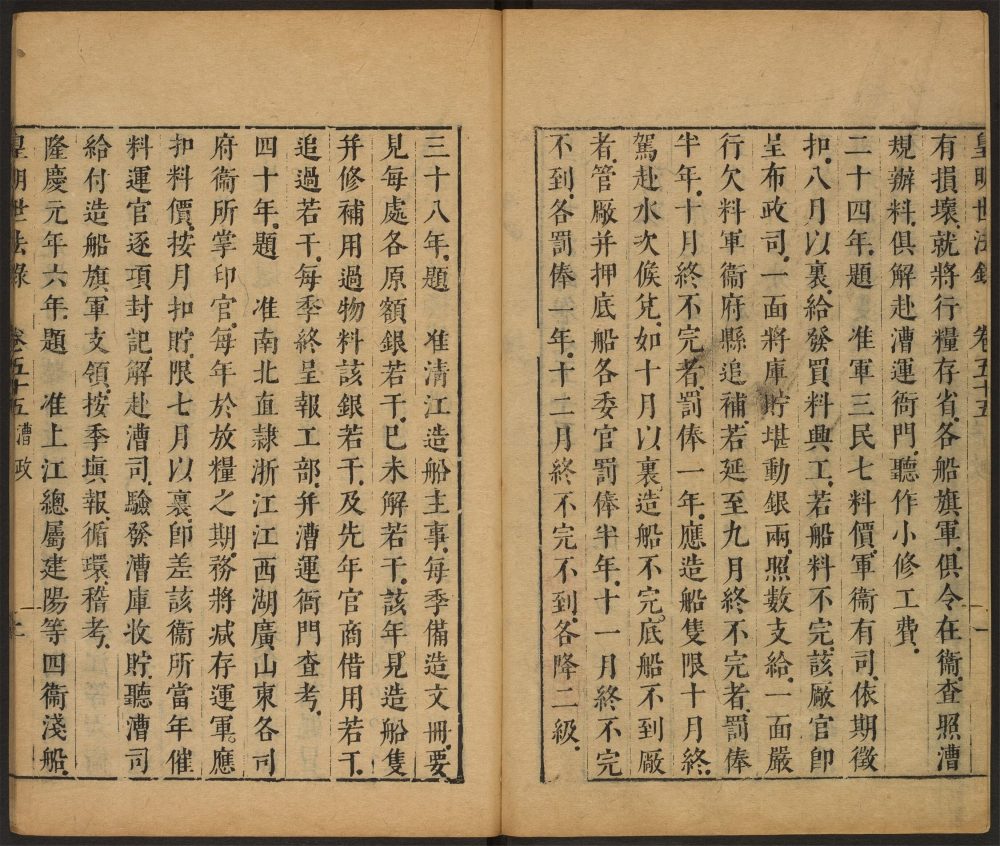 皇明世法錄 卷五十五
有損壞.就將行糧存省.各船旗軍.俱令在衞.查照漕
規辦料.俱解赴漕運衙門.聽作小修工費.
二十四年.題 准軍三民七料價.軍衞有司.依期徵
扣.八月以裏.給發買料興工.若船料不完.該廠官卽
呈布政司.一面將庫貯堪動銀兩.照數支給.一面嚴
行欠料軍衞府縣追補.若延至九月終不完者.罰俸
半年.十月終不完者.罰俸一年.應造船隻限十月終.
駕赴水次候兌.如十月以裏.造船不完.底船不到廠
者.管廠并押底船各委官罰俸半年.十一月終不完
不到.各罰俸一年.十二月終不完不到.各降二級.
三十八年.題 准清江造船主事.每季備造文冊.要
見每處各原額銀若干.已未解若干.該年見造船隻
并修補用過物料該銀若干.及先年官商借用若干.
追過若干.每季終呈報工部.并漕運衙門查考.
四十年.題 准南北直隸浙江江西湖廣山東各司
府衞所掌印官.每年於放糧之期.務將減存運軍.應
扣料價.按月扣貯.限七月以裏.卽差該衞所當年催
料運官逐項封記.解赴漕司.驗發漕庫收貯.聽漕司
給付造船旗軍支領.按季塡報.循環.稽考.
隆慶元年六年.題 准上江總屬建陽等四衞淺船.
皇明世法錄 卷五十五 漕政